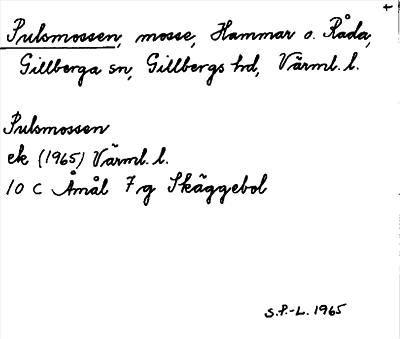 +
Pulsmossen, mosse, Hammar o. Råda,
Gillberga sn, Gillbergs hd, Värml. l.
Pulsmossen
ek (1965) Värml. l.
10 C Åmål 7 g Skäggebol
S.P.-L. 1965